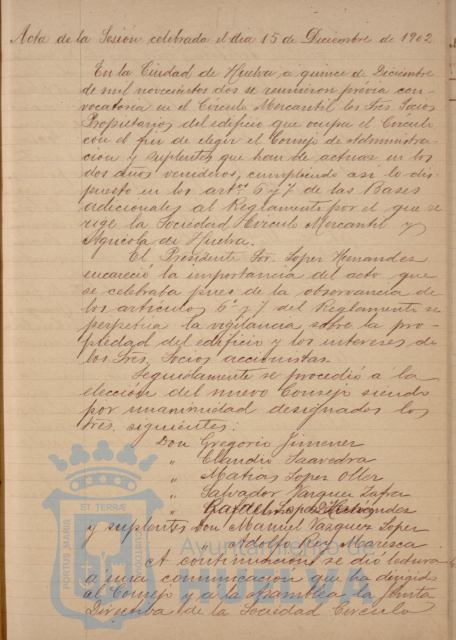 Acta de la Sesión celebrada el dia 15 de Diciembre de 1902
En la Ciudad de Huelva a quince de Diciembre
de mil novecientos dos se reunieron prévia con-
vocatoria en el Circulo Mercantil los Sres. Socios
Propietarios del edificio que ocupa el Circulo
con el fin de elegir el Consejo de Administra-
cion y suplentes que han de actuar en los
dos años venideros, cumpliendo asi lo dis-
puesto en los artos 6 y 7 de las Bases
adicionales al Reglamento por el que se
rige la Sociedad Circulo Mercantil y
Agricola de Huelva.
El Presidente Sor. Lopez Hernandez
encareció la importancia del acto que
se celebraba pues de la observancia de
los articulos 6º y 7 del Reglamento se
perpetua la vigilancia sobre la pro-
piedad del edificio y los intereses de
los Sres. Socios accionistas.
Seguidamente se procedió á la
elección del nuevo Consejo siendo
por unanimidad designados los
Sres. siguientes:
Don Gregorio Jimenez
" Claudio Saavedra
" Matias Lopez Oller
" Salvador Vazquez Zafra
" Rafael Lopez Hernandez
y suplentes Don Manuel Vazquez Lopez
" Adolfo Rey Maresca
A continuacion se dió lectura
a una comunicacion que ha dirigido
al Consejo y a la Asamblea la Junta
Directiva de la Sociedad Circulo
PORTUS MARIS
ET TERRAE
CUSTODIA
Ayuntamiento de
HUELVA